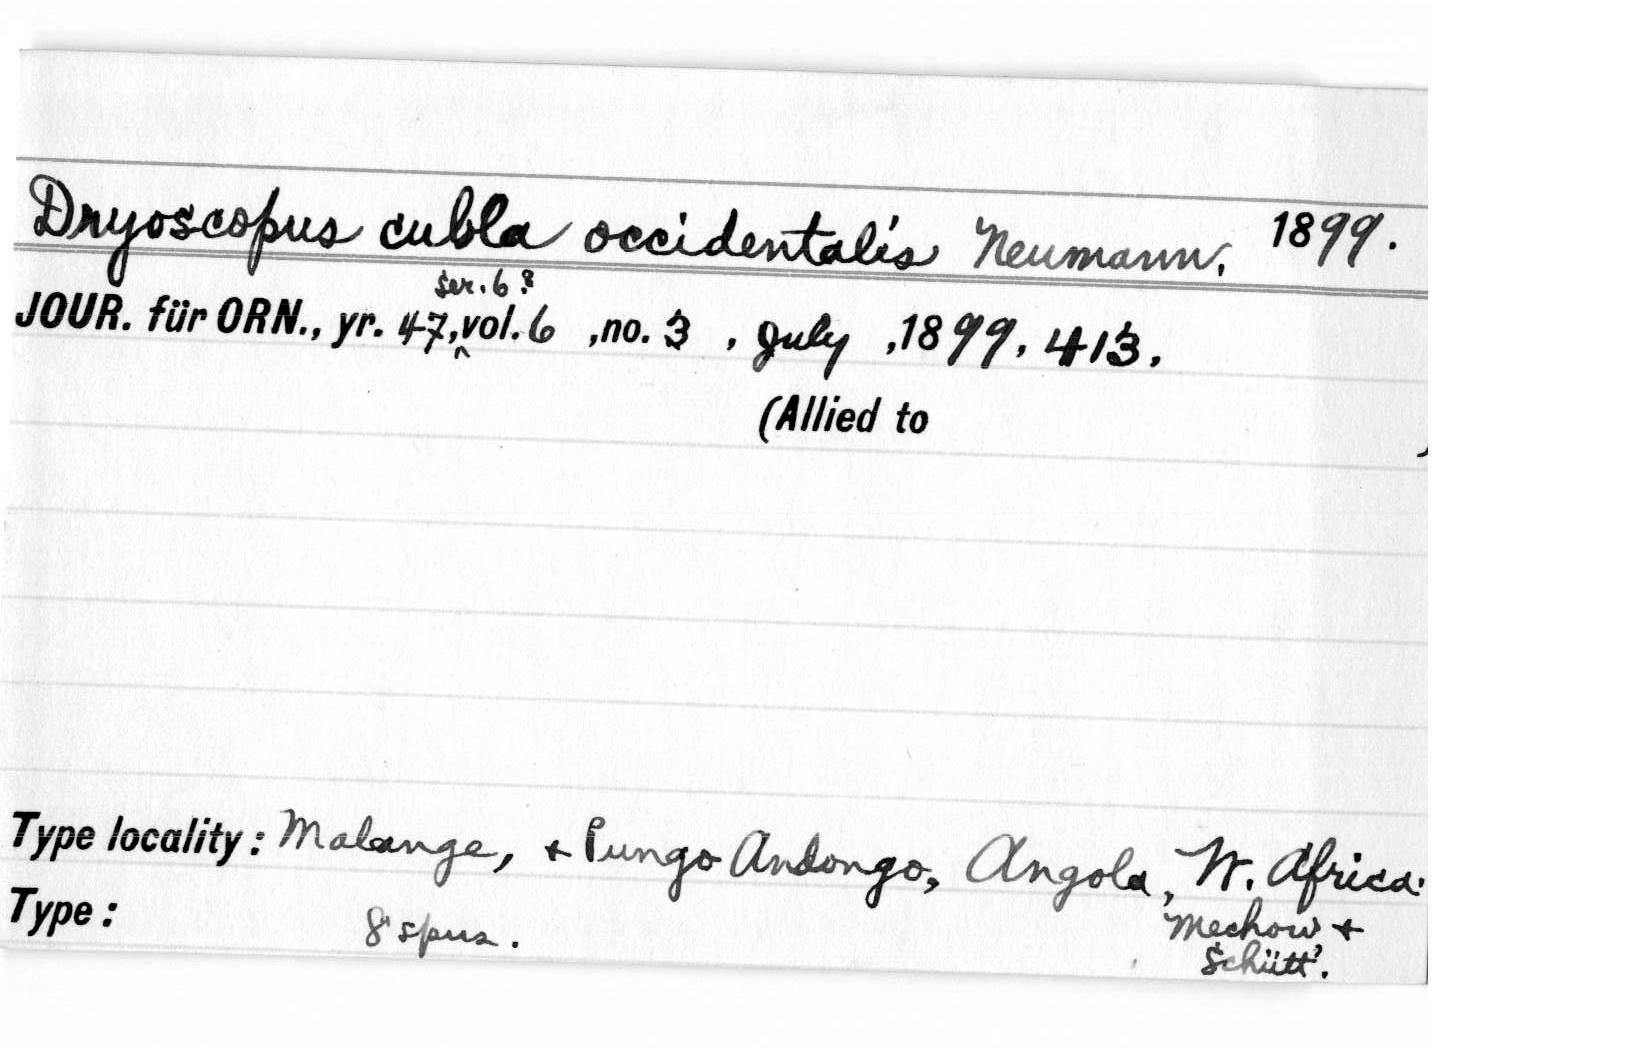 Dryoscopus cubla occidentalis Neumann, 1899.
ser. 6 ?
JOUR. für ORN., yr. 47, vol. 6 , no. 3 , July , 1899, 413.
(Allied to )
Type locality : Malange, + Pungo Andongo, Angola, W. Africa.
Type : 8 spms. Mechow +
Schütt.